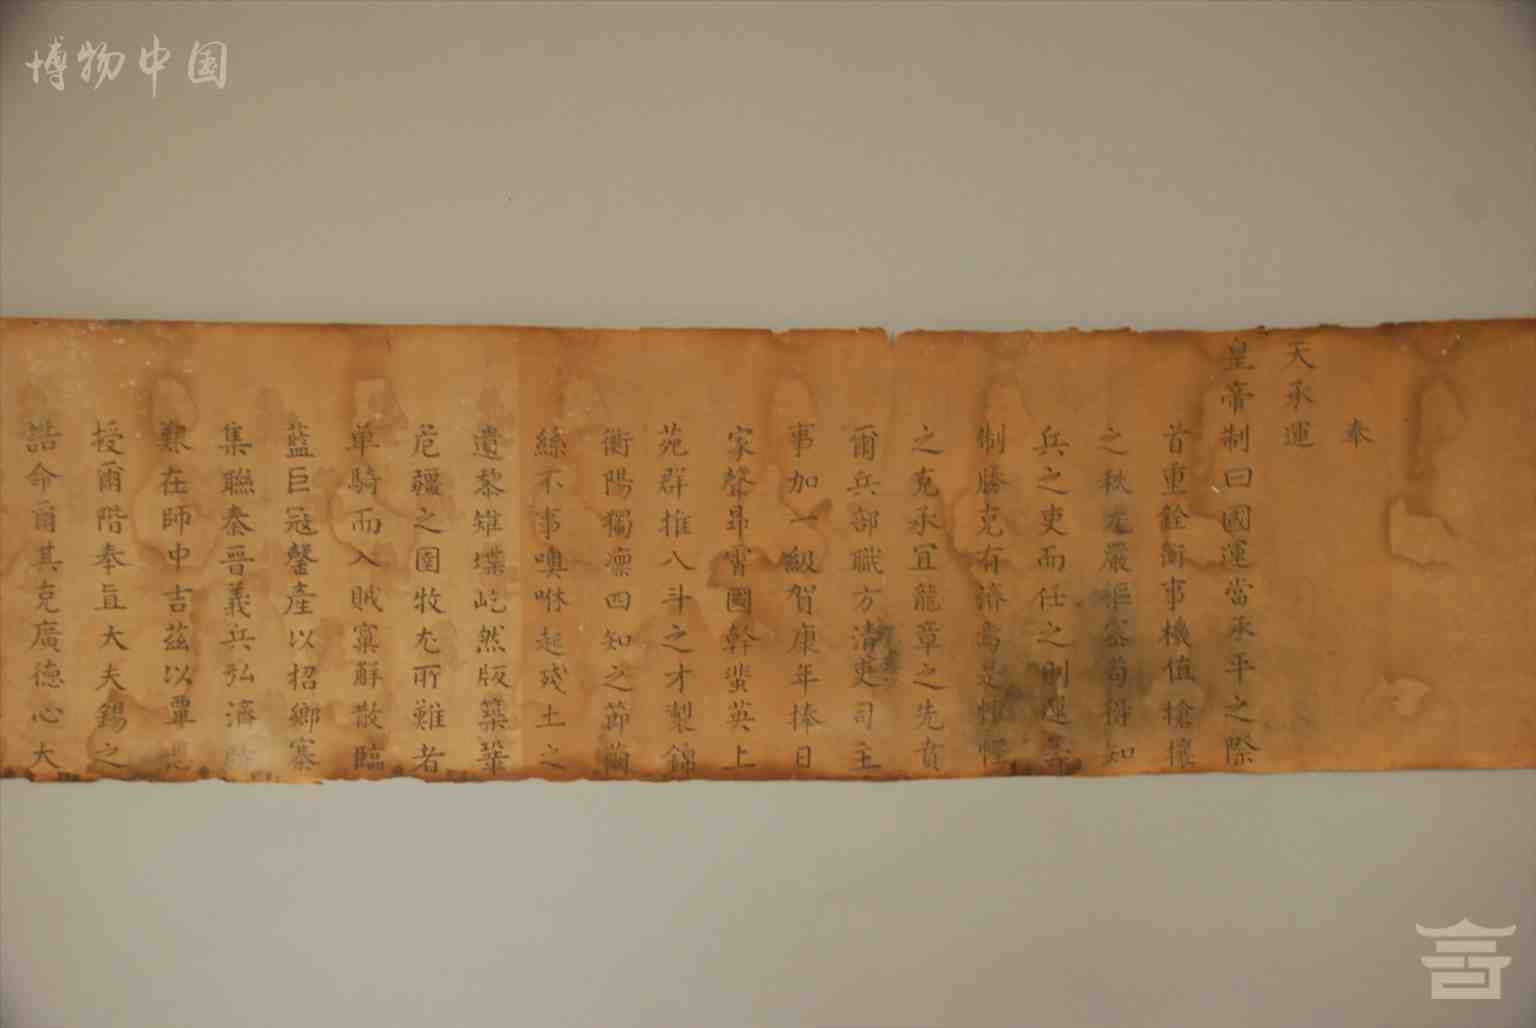 博物中国
奉
天承運
皇帝制曰國運當承平之際
首重銓衡事機值搶攘
之秋尤嚴樞密苟得知
兵之吏而任之則運籌
制勝克有濟焉是惟
之克承宜龍章之先賁
爾兵部職方清吏司主
事加一級賀康年捧日
家聲昂霄國幹蜚英上
苑群推八斗之才製錦
衡陽獨凛四知之節繭
絲不事噢咻起殘土之
遺黎雉堞屹然版築鞏
危疆之圉牧尤所難者
单騎而入賊窠解散臨
藍巨寇罄產以招鄉寨
集聯秦晋義兵弘濟
艱在師中吉茲以覃恩
授爾階奉直大夫錫之
誥命爾其克廣德心大